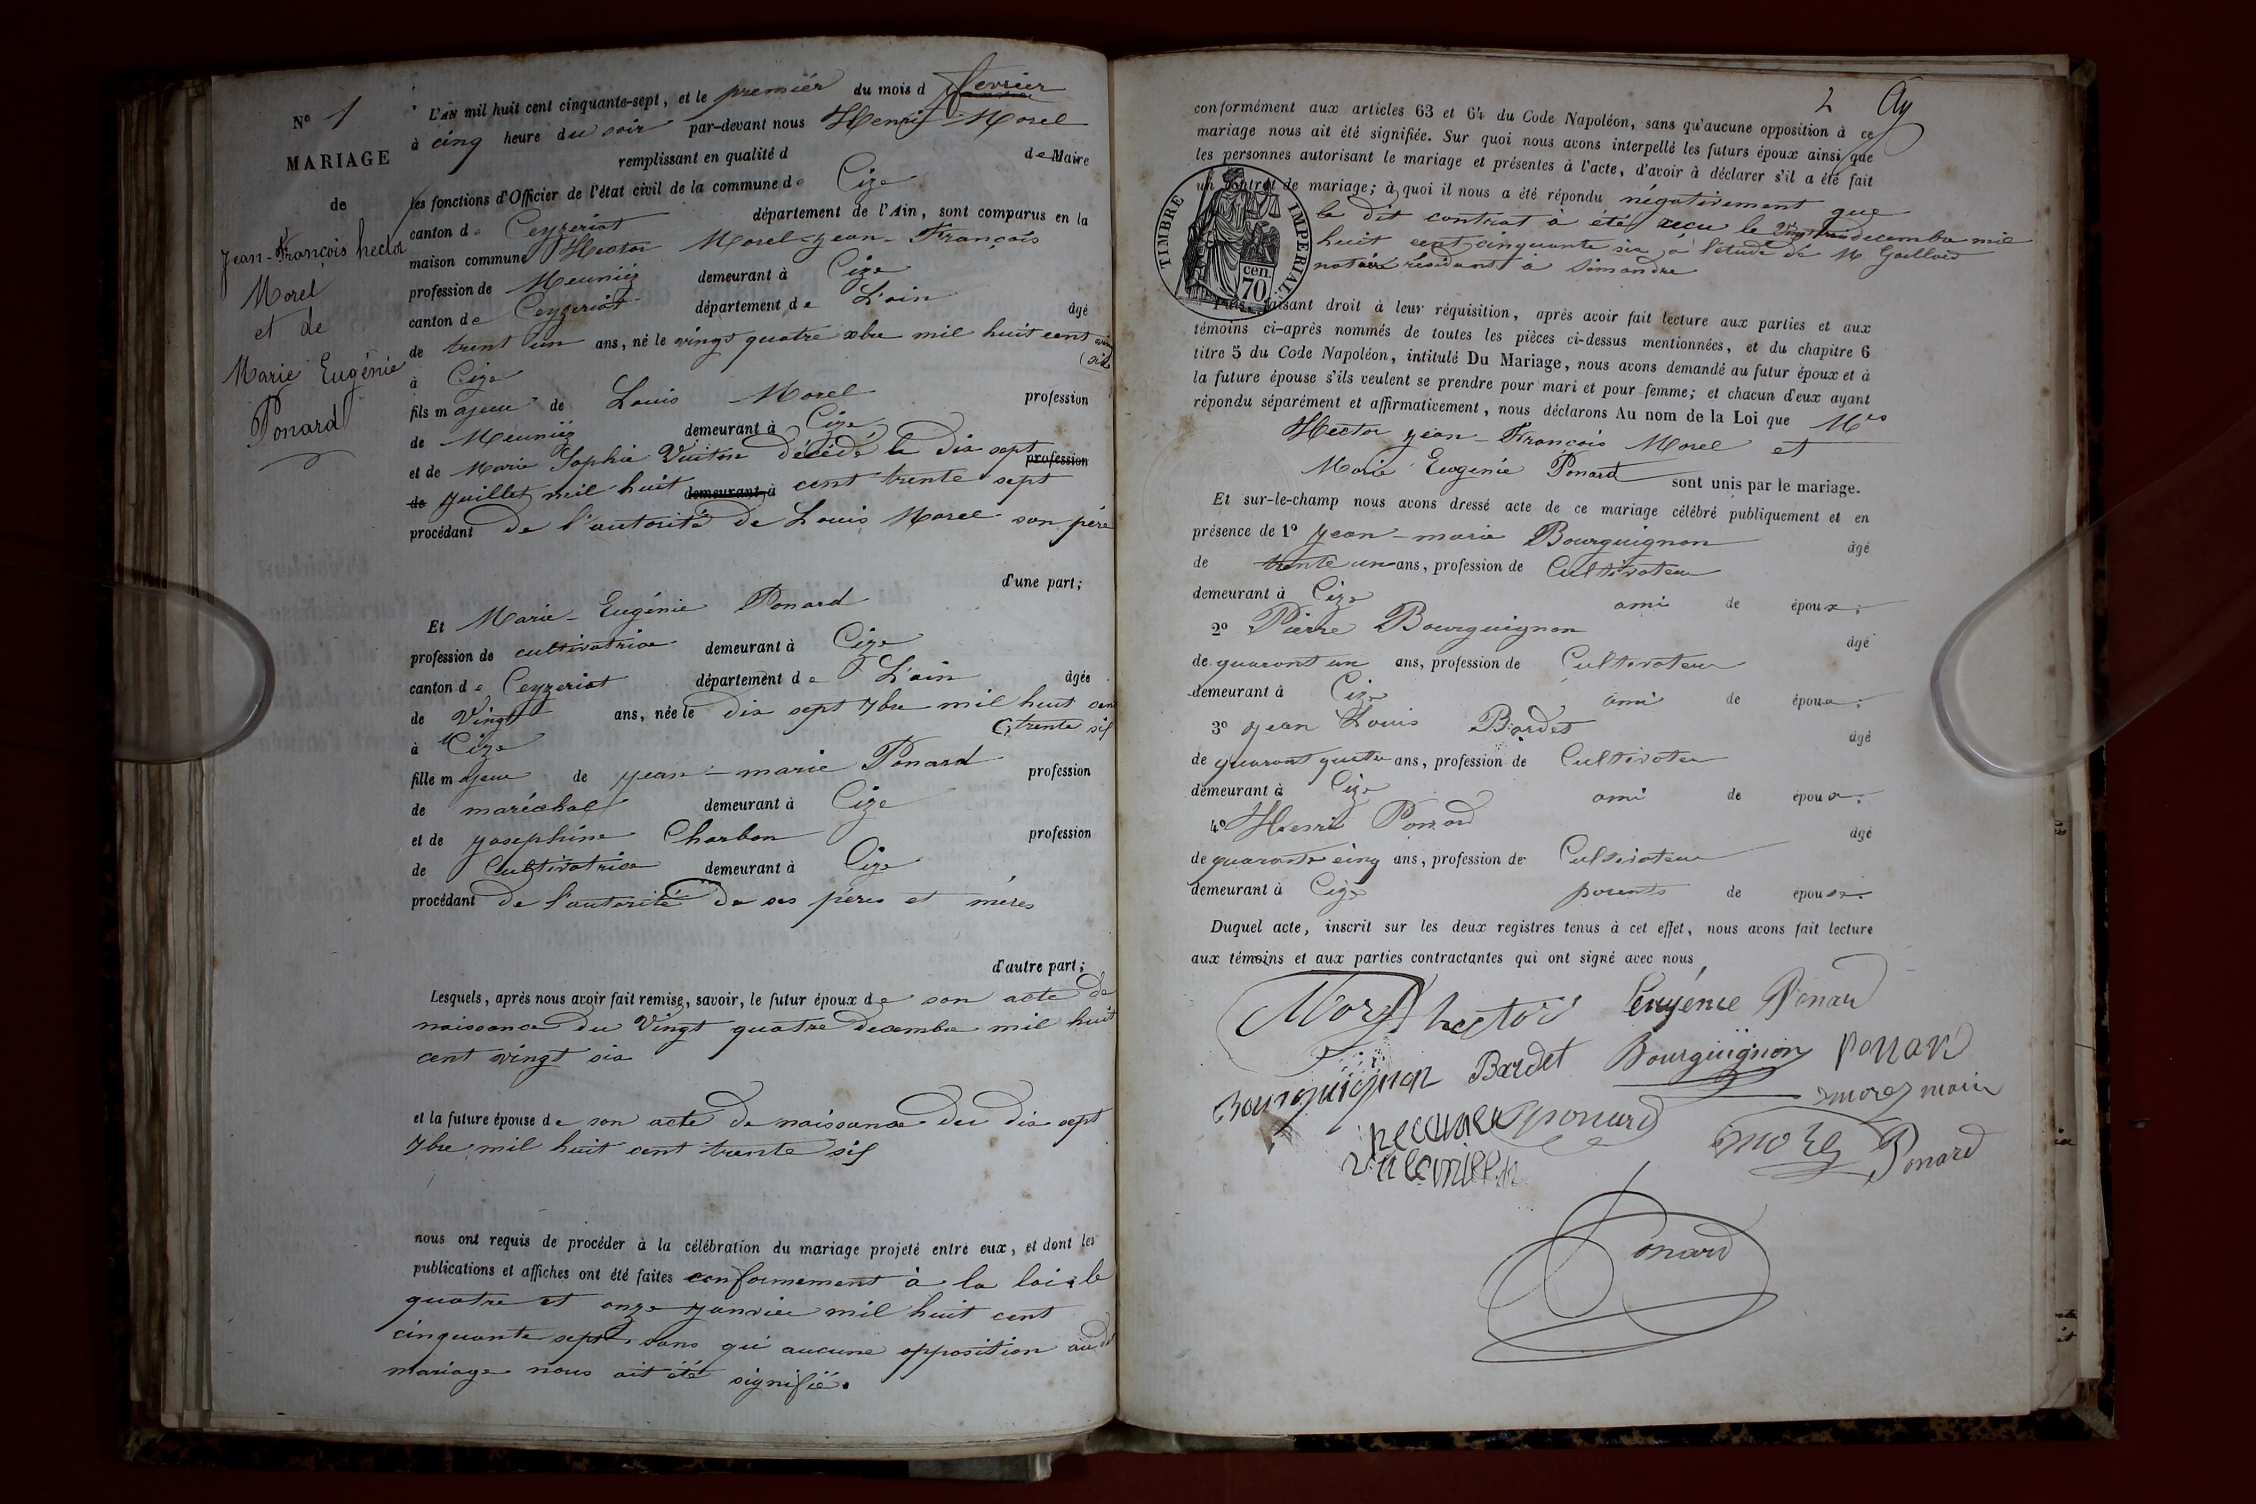 N° 1
MARIAGE
de
Jean-François hector
Morel
et de
Marie Eugénie
Ponard
L'AN mil huit cent cinquante-sept, et le premier du mois d fevrier
à cinq heure du soir par-devant nous Henri Morel
remplissant en qualité d de Maire
les fonctions d'Officier de l'état civil de la commune de Cize
canton de Ceyzeriat département de l'Ain, sont comparus en la
maison commune Hector Morel Jean-François
profession de Meuniez demeurant à Cize
canton de Ceyzeriat département de L'ain âgé
de trent un ans, né le vingt quatre xbre mil huit cent
à Cize
fils majeur de Louis Morel profession
de Meuniez demeurant à Cize
et de Marie Sophie décédé le dix sept profession
de juillet mil huit demeurant à cent trente sept
procédant de l'autorité de Louis Morel son père
d'une part;
Et Marie-Eugénie Ponard
profession de cultivatrice demeurant à Cize
canton de Ceyzeriat département de L'ain âgée
de Vingt ans, née le dix sept 7bre mil huit cen
t trente sis
à Cize
fille majeur de jean-marie Ponard profession
de maréchal demeurant à Cize
et de josephine Charbon profession
de Cultivatrice demeurant à Cize
procédant de l'autorité de ses pères et mères
d'autre part;
Lesquels, après nous avoir fait remise, savoir, le futur époux de son acte de
naissance du Vingt quatre decembre mil huit
cent vingt six
et la future épouse de son acte de naissance du dix sept
7bre mil huit cent trente sis
nous ont requis de procéder à la célébration du mariage projeté entre eux, et dont les
publications et affiches ont été faites conformement à la loi le
quatre et onze janvier mil huit cent
cinquante sept, sans qui aucune opposition au dt
mariage nous ait été signifié.
2
conformément aux articles 63 et 64 du Code Napoléon, sans qu'aucune opposition à ce
mariage nous ait été signifiée. Sur quoi nous avons interpellé les futurs époux ainsi que
les personnes autorisant le mariage et présentes à l'acte, d'avoir à déclarer s'il a été fait
un contrat de mariage; à quoi il nous a été répondu négativement que
le dit contrat à été recu le decembre mil
huit cent cinquante six à l'étude de M Gaillard
notaire résidant à Simandre
TIMBRE IMPERIAL
cen.
70
Puis, faisant droit à leur réquisition, après avoir fait lecture aux parties et aux
témoins ci-après nommés de toutes les pièces ci-dessus mentionnées, et du chapitre 6
titre 5 du Code Napoléon, intitulé Du Mariage, nous avons demandé au futur époux et à
la future épouse s'ils veulent se prendre pour mari et pour femme; et chacun d'eux ayant
répondu séparément et affirmativement, nous déclarons Au nom de la Loi que Mrs
Hector jean-François Morel et
Marie Eugenie Ponard sont unis par le mariage.
Et sur-le-champ nous avons dressé acte de ce mariage célébré publiquement et en
présence de 1° jean-marie Bourguignon âgé
de trente un ans, profession de Cultivateur
demeurant à Cize ami de époux;
2° Pierre Bourguignon âgé
de quarant un ans, profession de Cultivateur
demeurant à Cize ami de époux;
3° jean Louis Bardet âgé
de quarant quatre ans, profession de Cultivateur
demeurant à Cize ami de époux;
4° Henri Ponard âgé
de quarante cinq ans, profession de Cultivateur
demeurant à Cize parents de épouse.
Duquel acte, inscrit sur les deux registres tenus à cet effet, nous avons fait lecture
aux témoins et aux parties contractantes qui ont signé avec nous
Morel hector Eugénie Ponard
Bourguignon Bardet Bourguignon Ponard
morel maire
ponard morel Ponard
Ponard